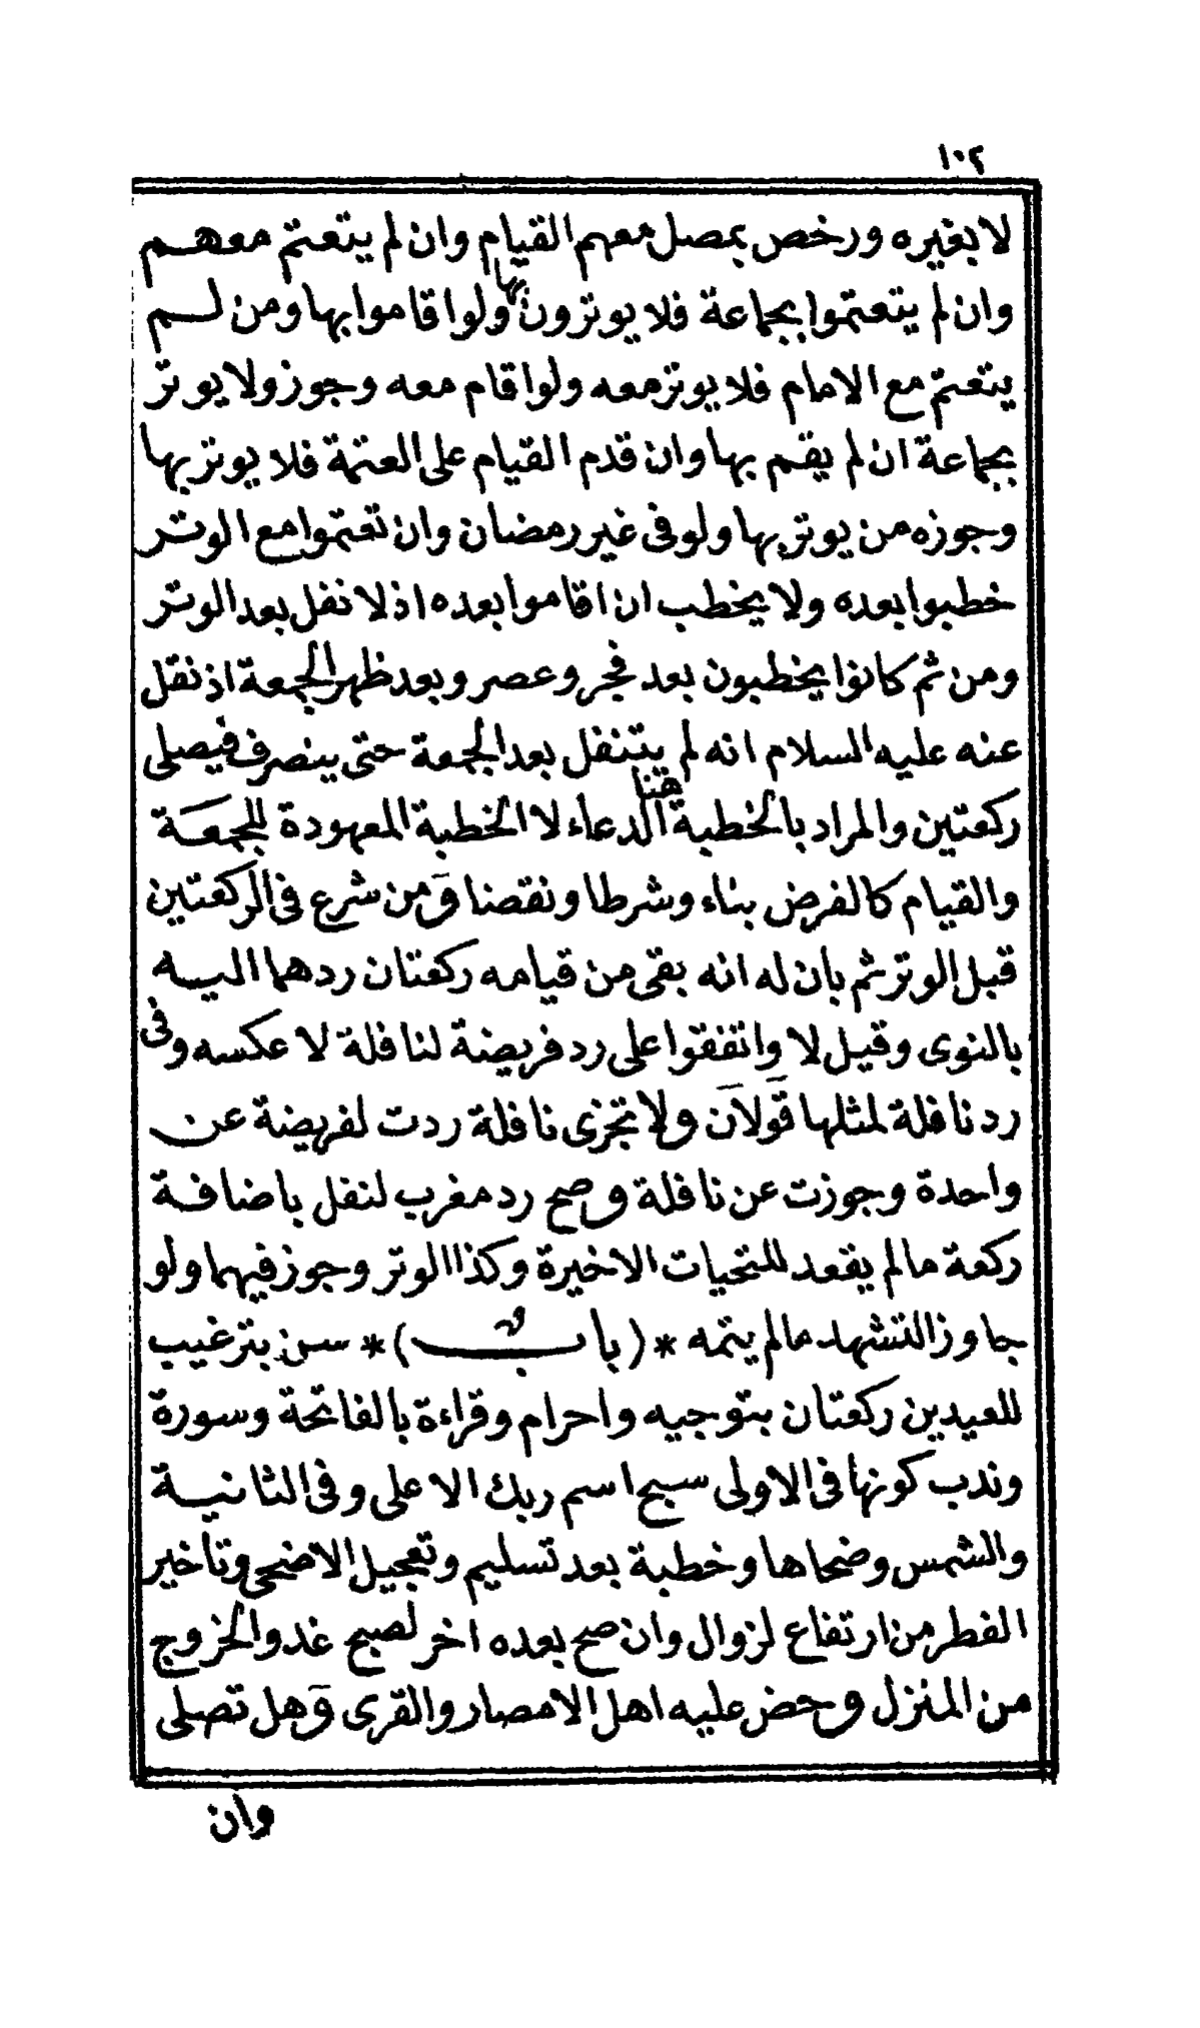 ١٠٢
لا بغيره ورخص بمصل معهم القيام وان لم يتعتم معهم
وان لم يتعتموا بجماعة فلا يوترون بها ولو اقاموا بها ومن لم
يتعتم مع الامام فلا يوتر معه ولو اقام معه وجوز ولا يوتر
بجماعة ان لم يقم بها وان قدم القيام على العتمة فلا يوتر بها
وجوزه من يوتر بها ولو فى غير رمضان وان تعتموا مع الوتر
خطبوا بعده ولا يخطب ان اقاموا بعده اذ لا نفل بعد الوتر
ومن ثم كانوا يخطبون بعد فجر وعصر وبعد ظهر الجمعة اذ نقل
عنه عليه السلام انه لم يتنفل بعد الجمعة حتى ينصرف فيصلى
ركعتين والمراد بالخطبة هنا الدعاء لا الخطبة المعهودة للجمعة
والقيام كالفرض بناء وشرطا ونقضا ومن شرع فى الركعتين
قبل الوتر ثم بان له انه بقى من قيامه ركعتان ردهما اليه
بالنوى وقيل لا واتفقوا على رد فريضة لنافلة لا عكسه وفى
رد نافلة لمثلها قولان ولا تجزى نافلة ردت لفريضة عن
واحدة وجوزت عن نافلة وصح رد مغرب لنفل باضافة
ركعة ما لم يقعد للتحيات الاخيرة وكذا الوتر وجوز فيهما ولو
جاوز التشهد ما لم يتمه * (باب) * سن بترغيب
للعيدين ركعتان بتوجيه واحرام وقراءة بالفاتحة وسورة
وندب كونها فى الاولى سبح اسم ربك الاعلى وفى الثانية
والشمس وضحاها وخطبة بعد تسليم وتعجيل الاضحى وتاخير
الفطر من ارتفاع لزوال وان صح بعده اخر لصبح غد والخروج
من المنزل وحض عليه اهل الامصار والقرى وهل تصلى
وان